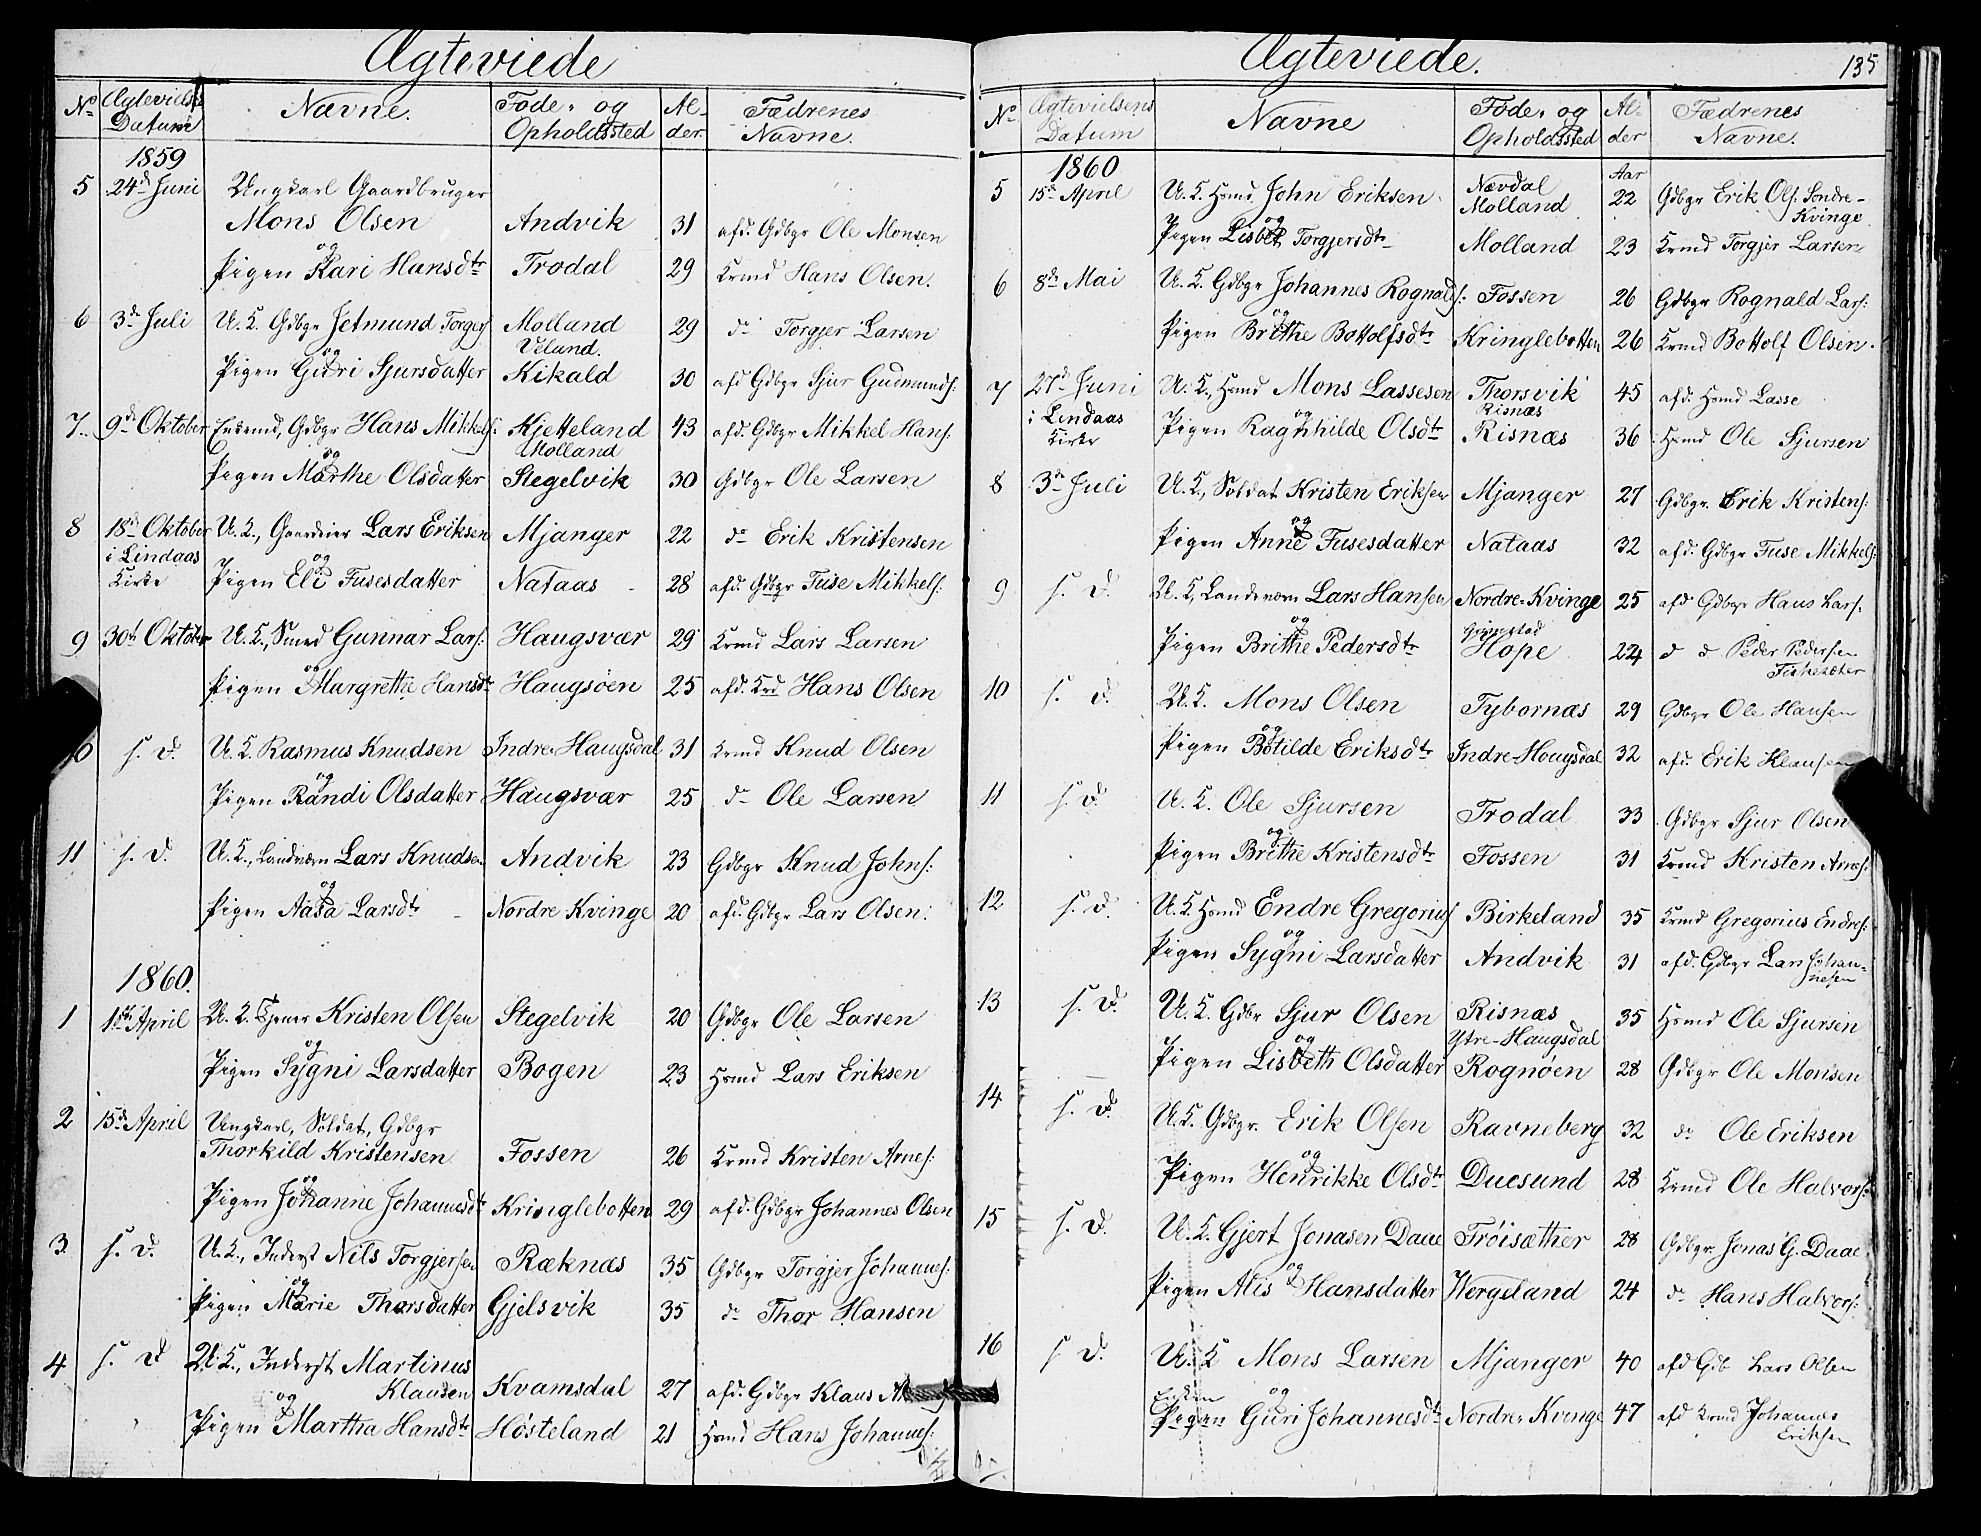 Ægteviede
No Ægtevielsens Datum Navne. Føde- og Opholdssted Al- der. Fædrenes Navne.
1859
5 24de Juni Ungkarl Gaardbruger
Mons Olsen Andvik 31 afd. Gdbgr Ole Monsen
og
Pigen Kari Hansdtr Trodal 29 Krmd Hans Olsen.
6 3de Juli U. K. Gdbgr Jetmund Torgers: Molland 29 do Torgjer Larsen
og Veland.
Pigen Guri Sjursdatter Kikald 30 afd Gdbgr Sjur Gudmunds:
7 9de Oktober Enkemd, Gdbgr Hans Mikkels: Kjetteland 43 afd. Gdbgr Mikkel Hans:
og Molland
Pigen Marthe Olsdatter Stegelvik 30 Gdbgr Ole Larsen
8 18de Oktober U. K., Gaardeier Lars Eriksen Mjanger 22 do Erik Kristensen
i Lindaas og
Kirke Pigen Eli Fusesdatter Nataas 28 afd. Gdbgr Fuse Mikkels:
9 30te Oktober U. K., Smed Gunnar Lars: Haugsvær 29 Krmd Lars Larsen
og
Pigen Margrethe Hansdtr Haugsøen 25 afd. Krd Hans Olsen
10 s. D. U. K. Rasmus Knudsen Indre-Haugsdal 31 Krmd Knud Olsen
og
Pigen Randi Olsdatter Haugsvær 25 do Ole Larsen
11 s. D. U. K., Landværn Lars Knudsen Andvik 23 Gdbgr Knud Johns:
og
Pigen Aasa Larsdtr Nordre Kvinge 20 afd. Gdbgr Lars Olsen.
1860.
1 1ste April U. K. Tjener Kristen Olsen Stegelvik 20 Gdbgr Ole Larsen
og
Pigen Sygni Larsdatter Bogen 23 Hsmd Lars Eriksen
2 15de April Ungkarl, Soldat, Gdbgr
Thorkild Kristensen Fossen 26 Krmd Kristen Arnes:
og
Pigen Johanne Johannesdtr Kringlebotten 29 afd. Gdbgr Johannes Olsen
3 s. D. U. K., Inderst Nils Torgjersen Ræknæs 35 Gdbgr Torgjer Johannes:
og
Pigen Marie Thorsdatter Gjelsvik 35 do Thor Hansen
4 s. D U. K., Inderst Martinus
Klausen Kvamsdal 27 afd. Gdbgr Klaus
og
Pigen Martha Hansdtr Høsteland 21 Hsmd Hans Johannes:
Ægteviede. 135
No Ægtevielsens Datum Navne Føde- og Opholdssted Al- der Fædrenes Navne.
1860 Aar
5 15de April U. K. Hsmd John Eriksen Nævdal Molland 22 Gdbgr Erik Ols: Søndre-
Kvinge
og
Pigen Lisbet Torgjersdtr Molland 23 Krmd Torgjer Larsen
6 8de Mai U. K. Gdbgr Johannes Rognalds: Fossen 26 Gdbgr Rognald Lars:
og
Pigen Brithe Bottolfsdtr Kringlebotten 26 Krmd Bottolf Olsen.
7 27de Juni U. K., Hsmd Mons Lassesen Thorsvik 45 afd. Hsmd Lasse
i Lindaas og Risnæs
Kirke Pigen Ragnhilde Olsdtr Risnæs 36 Hsmd Ole Sjursen
8 3de Juli U. K., Soldat Kristen Eriksen Mjanger 27 Gdbgr. Erik Kristens:
og
Pigen Anne Fusesdatter Nataas 32 afd. Gdbgr Fuse Mikkels:
9 s. D. U. K., Landværn Lars Hansen Nordre-Kvinge 25 afd Gdbgr Hans Lars:
og Grimstad
Pigen Brithe Pedersdtr Hope 24 d d Peder Pedersen
Fiskesæter
10 s. D. U. K. Mons Olsen Tybornæs 29 Gdbgr Ole Hansen
og
Pigen Botilde Eriksdtr Indre-Hougsdal 32 afd. Erik Klausen
11 s. D. U. K. Ole Sjursen Trodal 33 Gdbgr Sjur Olsen
og
Pigen Brithe Kristensdtr Fossen 31 Krmd Kristen Arnes:
12 s. D. U. K. Hsmd Endre Gregorius: Birkeland 35 Krmd Gregorius Endres:
og
Pigen Sygni Larsdatter Andvik 31 afd. Gdbgr Lars Johan-
nesen
13 s. D. U. K. Gdbr Sjur Olsen Risnæs 35 Hsmd Ole Sjursen
og Ytre-Haugsdal
Pigen Lisbeth Olsdatter Rognøen 28 Gdbgr Ole Monsen
14 s. D. U. K. Gdbgr. Erik Olsen Ravneberg 32 do Ole Eriksen
og
Pigen Henrikke Olsdtr Duesund 28 Krmd Ole Halvors:
15 s. D. U. K. Gjert Jonasen Daae Frøisæther 28 Gdbgr. Jonas G. Daae
og
Pigen Alis Hansdatter Wergeland 24 do Hans Halvors:
16 s D. U. K Mons Larsen Mjanger 40 afd Gdb Lars Olsen
Enken og
Pigen Guri Johannesdtr Nordre Kvinge 47 afd Krmd Johannes
Eriksen